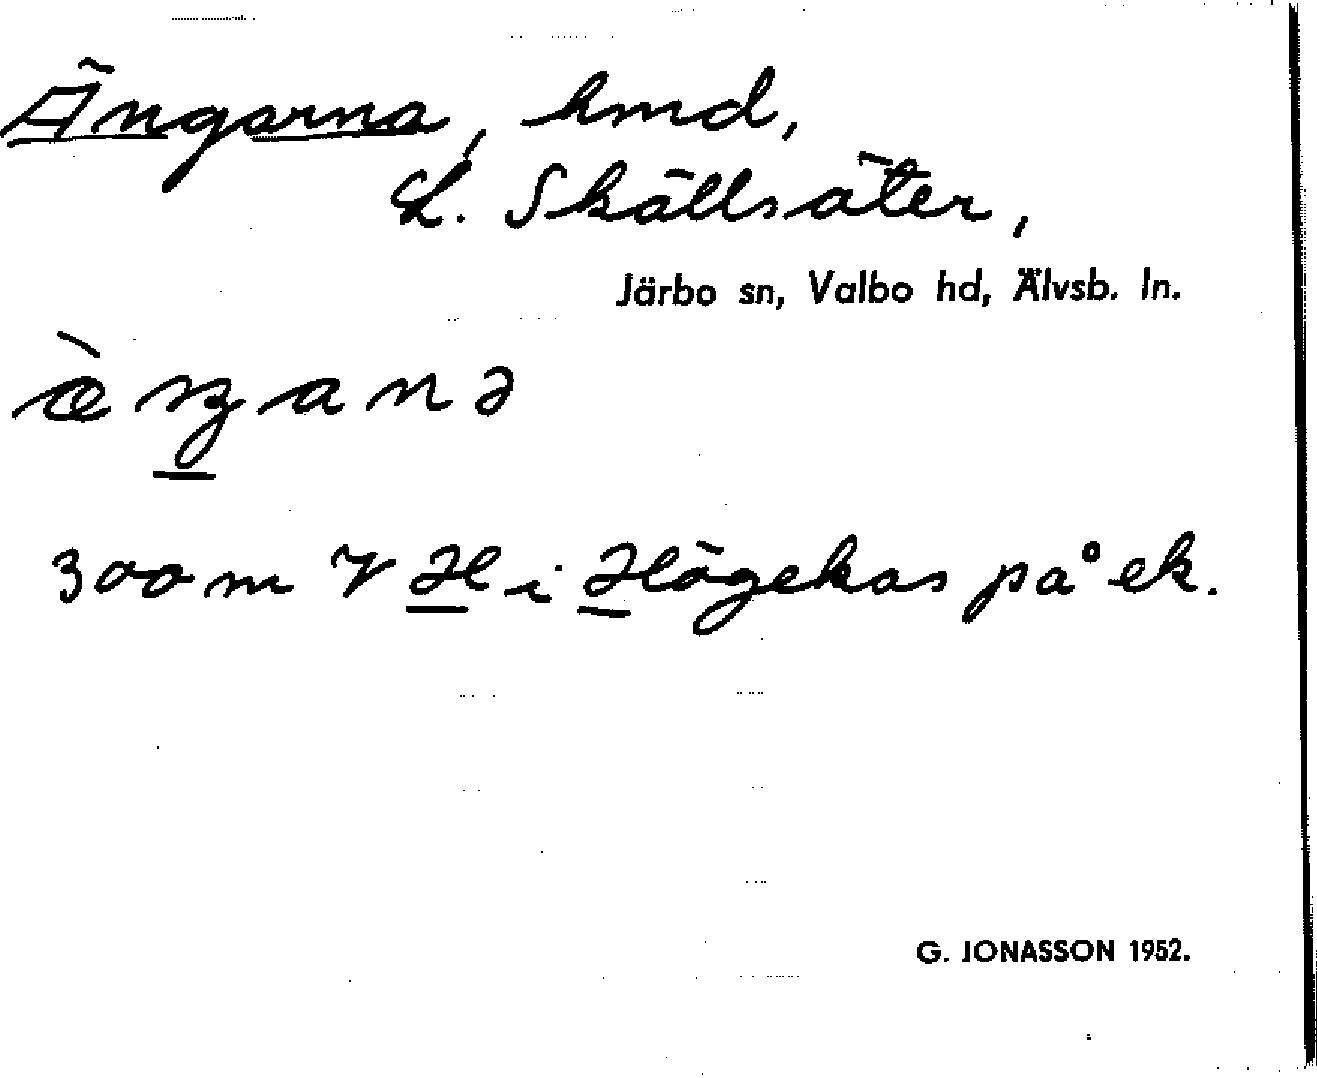 Ängarna, hmd,
L. Skällsäter,
Järbo sn, Valbo hd, Älvsb. ln.
æ̀ŋanə
300 m V H i Högekas på ek.
G. JONASSON 1952.